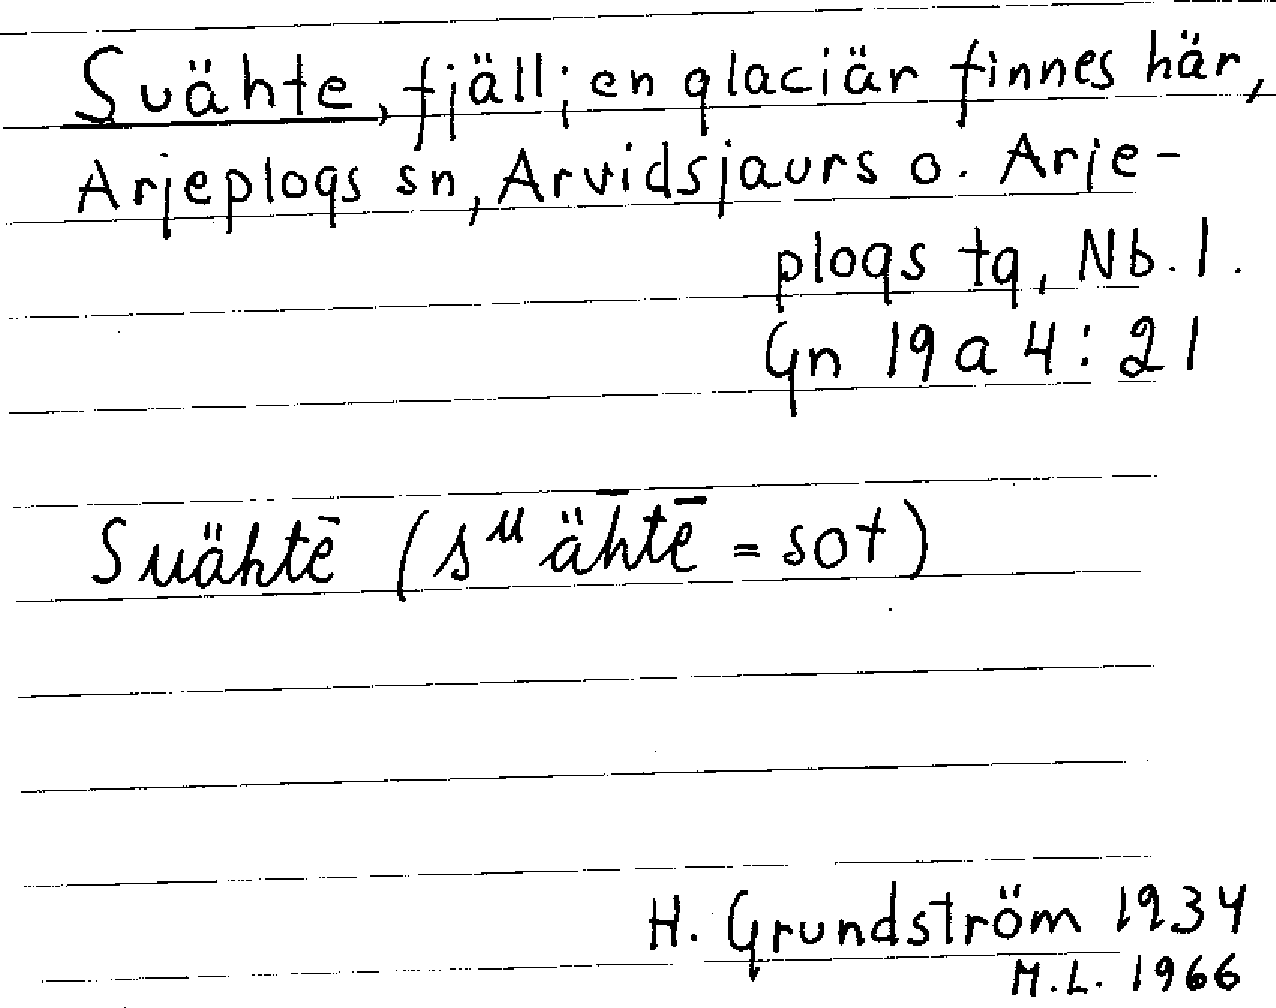 Suähte, fjäll; en glaciär finnes här,
Arjeplogs sn, Arvidsjaurs o. Arje-
plogs tg, Nb. l.
Gn 19 a 4: 21
Suähtē (sᵘähtē = sot)
H. Grundström 1934
M.L. 1966